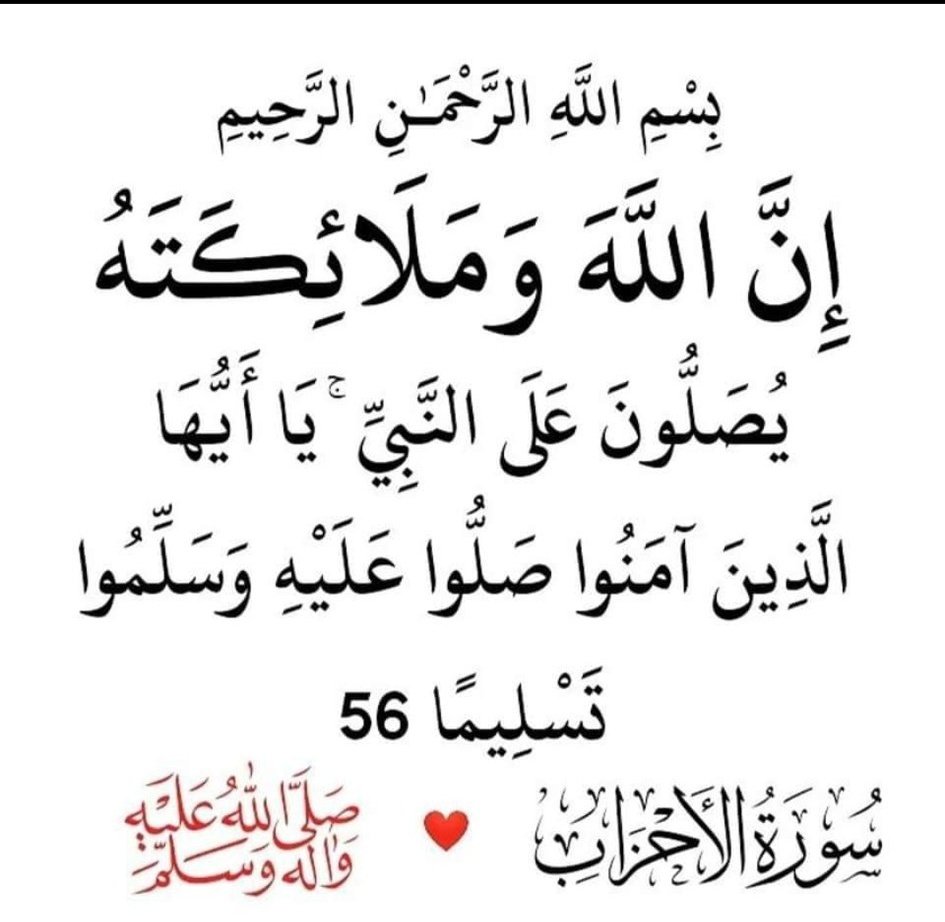 بِسْمِ اللَّهِ الرَّحْمَـٰنِ الرَّحِيمِ
إِنَّ اللَّهَ وَمَلَائِكَتَهُ
يُصَلُّونَ عَلَى النَّبِيِّ ۚ يَا أَيُّهَا
الَّذِينَ آمَنُوا صَلُّوا عَلَيْهِ وَسَلِّمُوا
تَسْلِيمًا 56
سُورَةُ الأَحْزَابِ ❤️ صَلَّى اللهُ عَلَيْهِ
وَآلِهِ وَسَلَّمَ